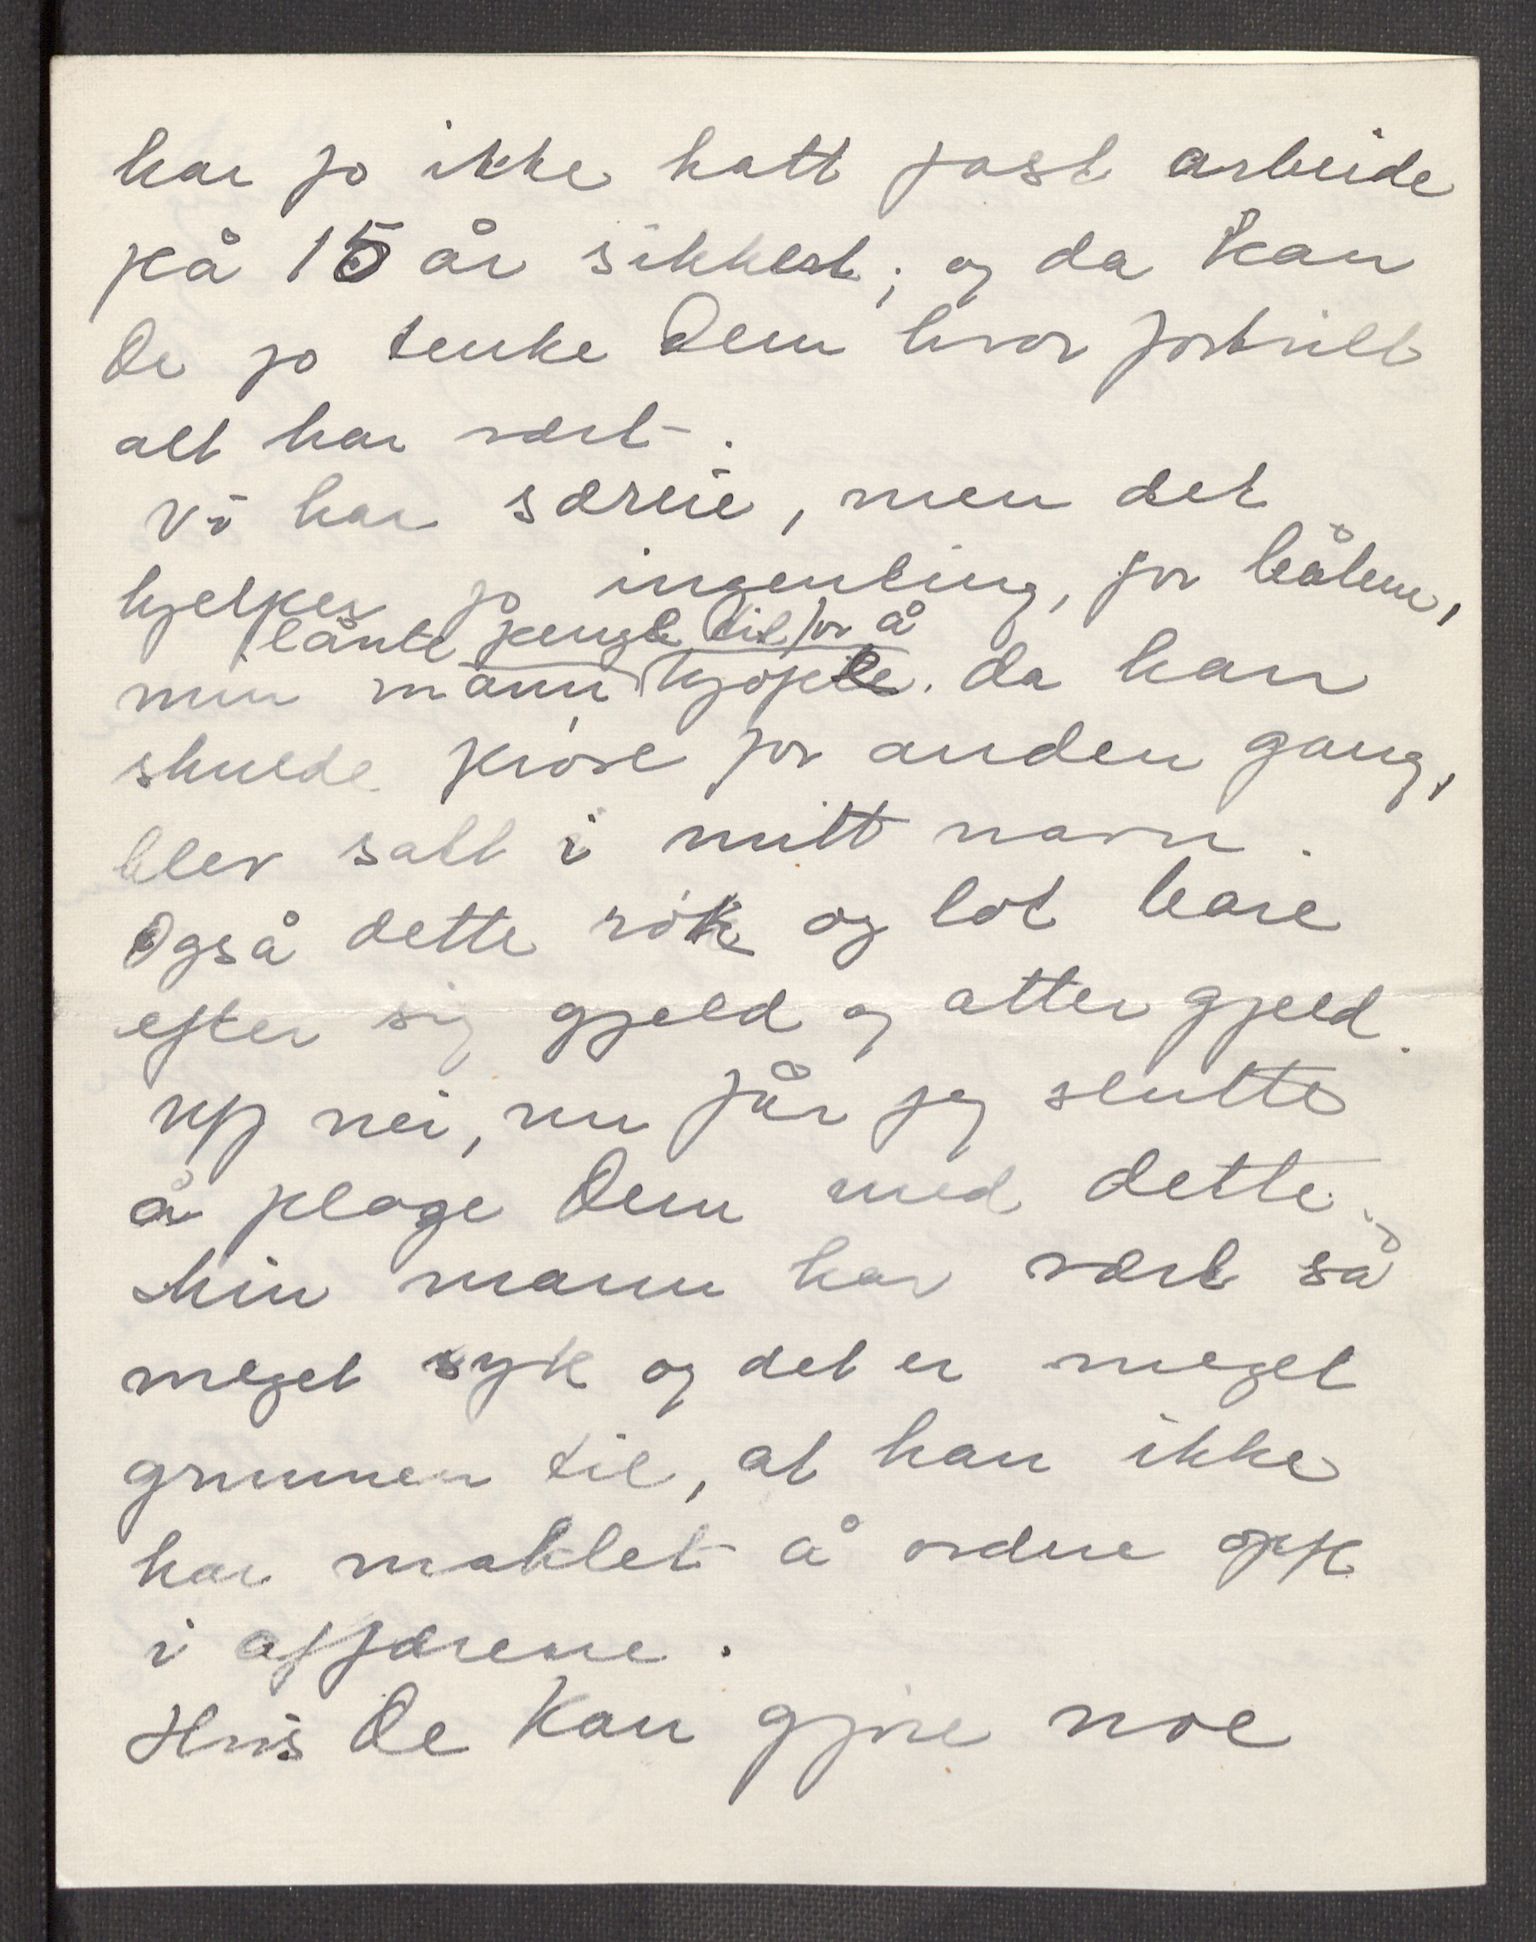 har jo ikke hatt fast arbeide
på 15 år sikkert; og da kan
De jo tenke Dem hvor fortvilt
alt har vært.
Vi har særeie, men det
hjelper jo ingenting, for båten,
lånte penge til for å
min mann kjøpte. da han
skulde prøve for anden gang,
blev satt i mitt navn.
Også dette røk og lot bare
efter sig gjeld og atter gjeld.
Uff nei, nu får jeg slutte
å plage Dem med dette.
Min mann har vært så
meget syk og det er meget
grunnen til, at han ikke
har maktet å ordne opp
i affærene.
Hvis De kan gjøre noe